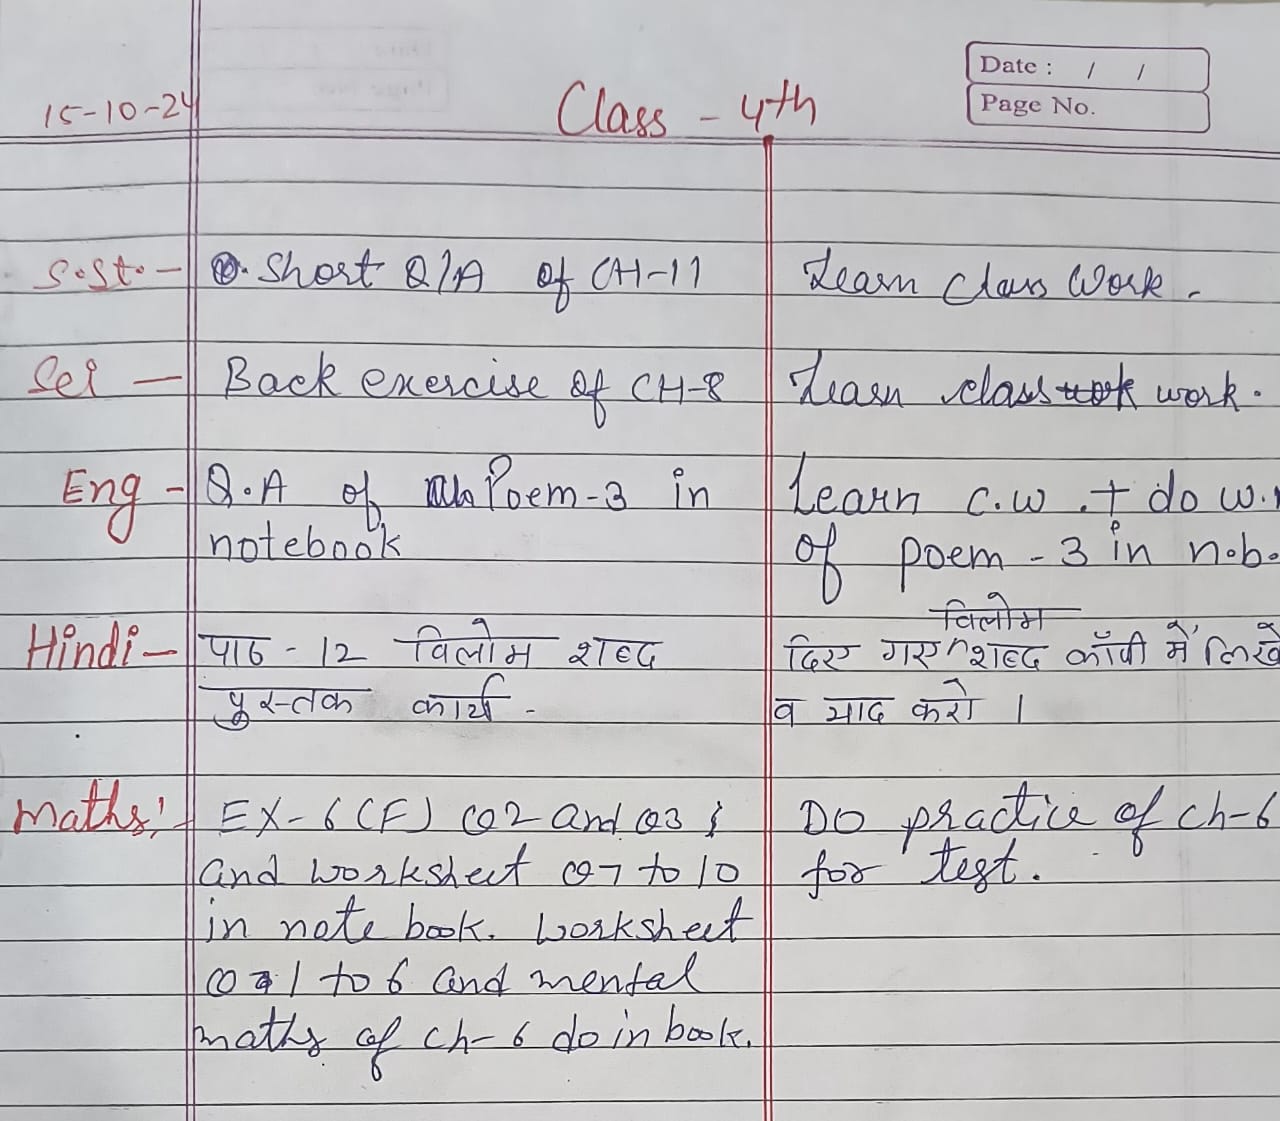 Date : / /
Page No.
15-10-24 Class - 4th
S.St. - Short Q/A of CH-11 Learn Class Work.
Sci - Back exercise of CH-8 Learn class work.
Eng - Q.A of Poem-3 in Learn C.W. + do w.
notebook of poem - 3 in n.b.
विलोम
Hindi - पाठ - 12 विलोम शब्द दिए गए शब्द कॉपी में लिखें
पुस्तक कार्य - व याद करो ।
Maths:- EX-6(F) Q2 and Q3 & Do practice of ch-6
and worksheet Q7 to 10 for test.
in note book. Worksheet
Q 1 to 6 and mental
maths of ch-6 do in book.